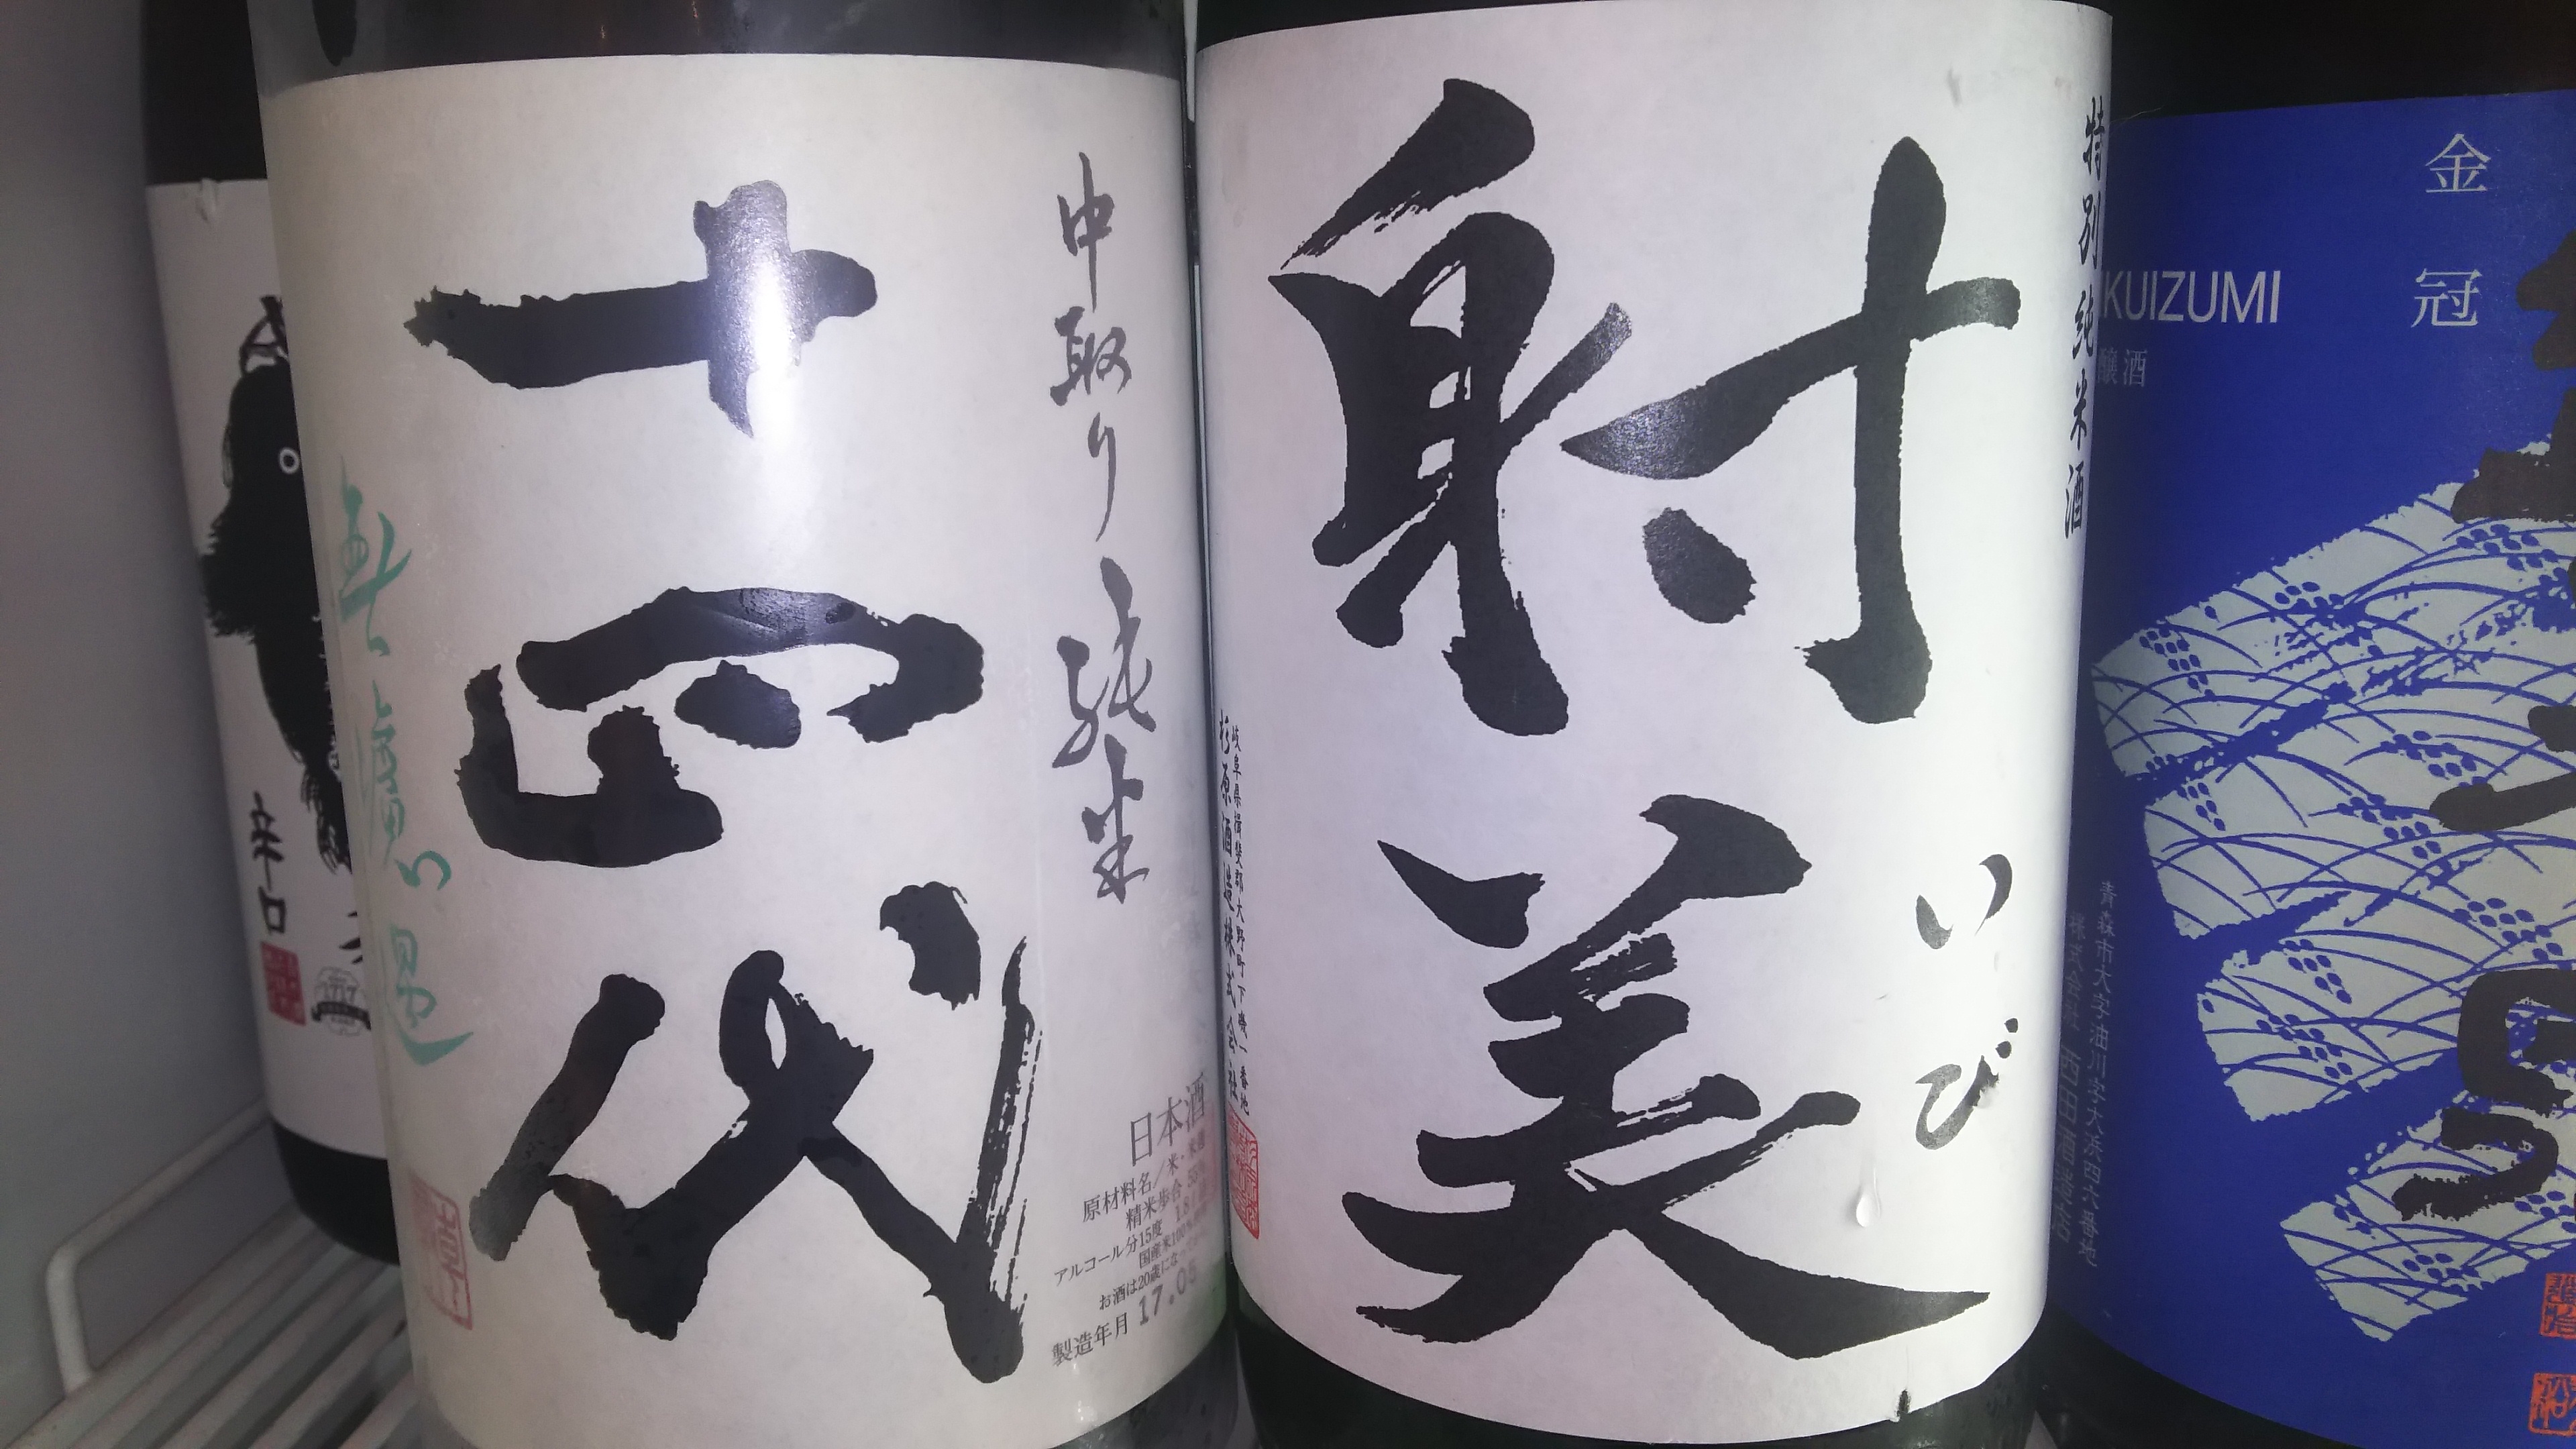 辛口
1717
十四代
中取り純米
無濾過
日本酒
原材料名／米・米麹
精米歩合 55%
アルコール分15度 1.8
国産米100%
お酒は20歳にな
製造年月 17.05
射美
いび
特別純米酒
岐阜県揖斐郡大野町下磯一番地
杉原酒造株式会社
金冠
KUIZUMI
醸酒
青森市大字油川字大浜四六番地
株式会社 西田酒造店